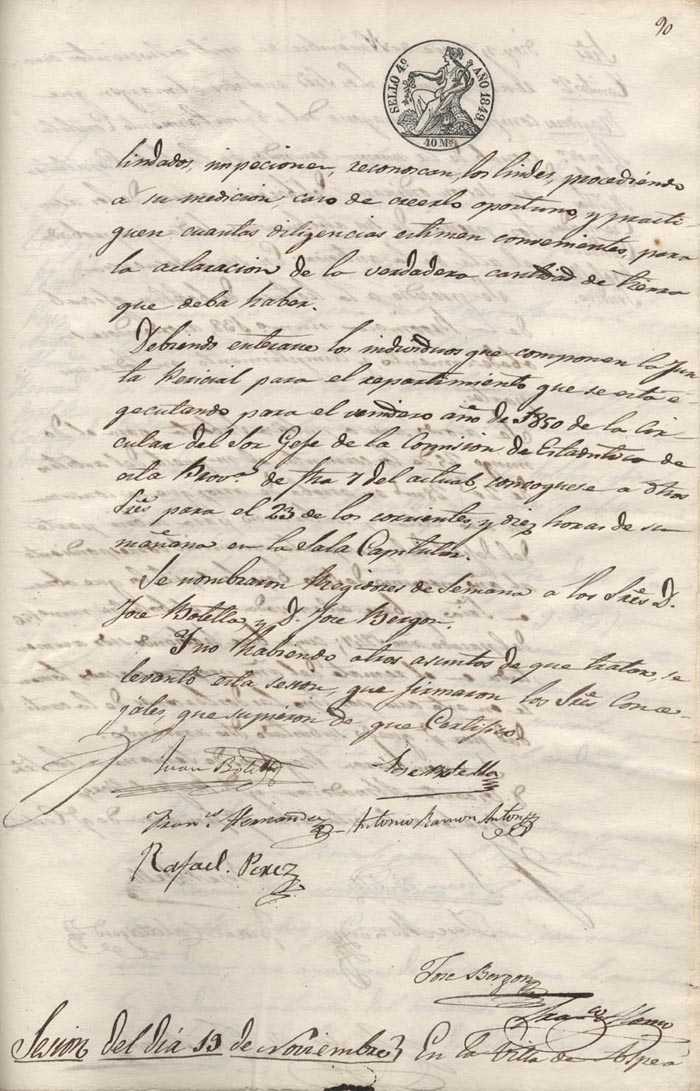 90
SELLO 4º AÑO 1849.
40 Ms.
lindados, inspecionen, reconoscan, los lindes, procediendo
á su medicion, caso de creerlo oportuno, y practi-
quen cuantas diligencias estimen convenientes, para
la aclaracion de la verdadera cantidad de tierra
que deba haber.
Debiendo enterarse los individuos que componen la Jun-
ta Pericial para el repartimiento que se está e-
gecutando para el venidero año de 1850 de la Cir-
cular del Sor Gefe de la Comision de Estadistica de
esta Provª de fha 7 del actual, convoquese a dhos
Sres para el 23 de los corrientes, y diez horas de su
mañana en la Sala Capitular.
Se nombraron Regidores de Semana a los Sres D.
Jose Botella y D. Jose Bergon.
Y no habiendo otros asuntos de que tratar, se
levantó esta sesion, que firmaron los Sres Conce-
jales, que supieron de que Certifico
Juan Botella Jose Botella
Franco Hernandez Antonio Ramon Antong
Rafael Perez
Jose Bergon
Sesion del dia 13 de Noviembre En la Villa de Aspe á